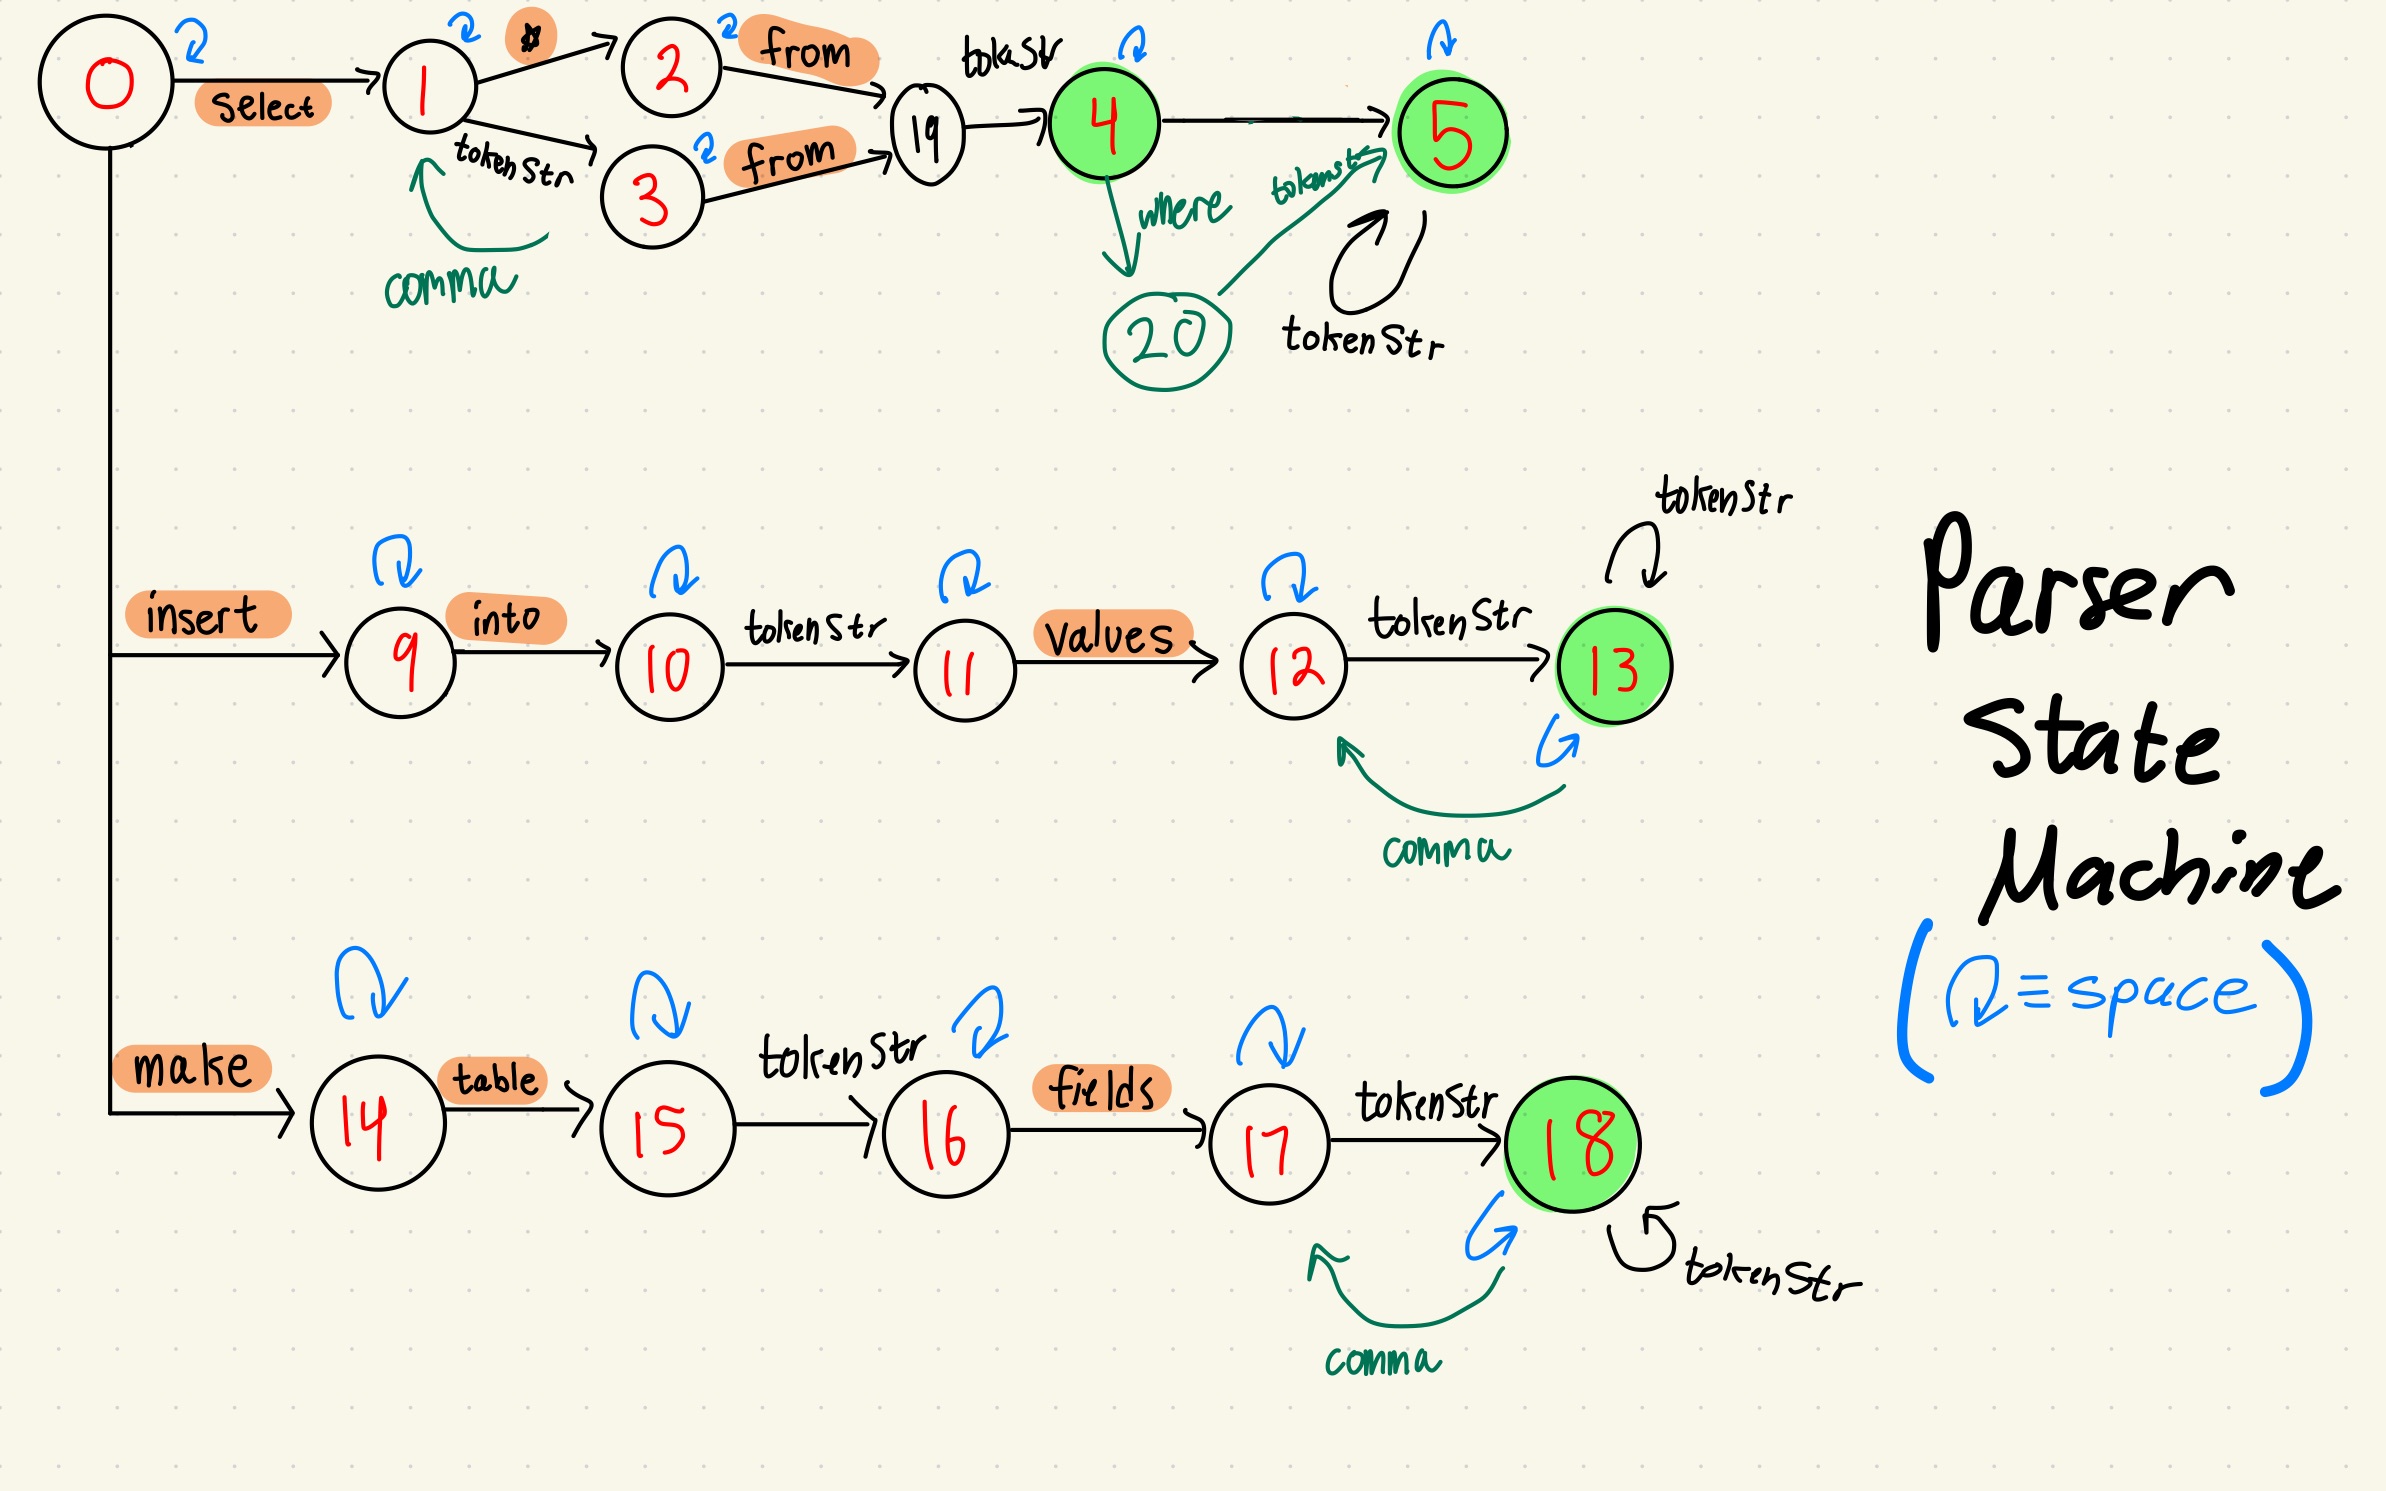 0
select
1
*
tokenStr
comma
2
3
from
from
19
tokStr
4
where
20
tokenStr
5
tokenStr
insert
9
into
10
tokenStr
11
values
12
tokenStr
13
tokenStr
comma
make
14
table
15
tokenStr
16
fields
17
tokenStr
18
tokenStr
comma
Parser
State
Machine
( ≡ space)